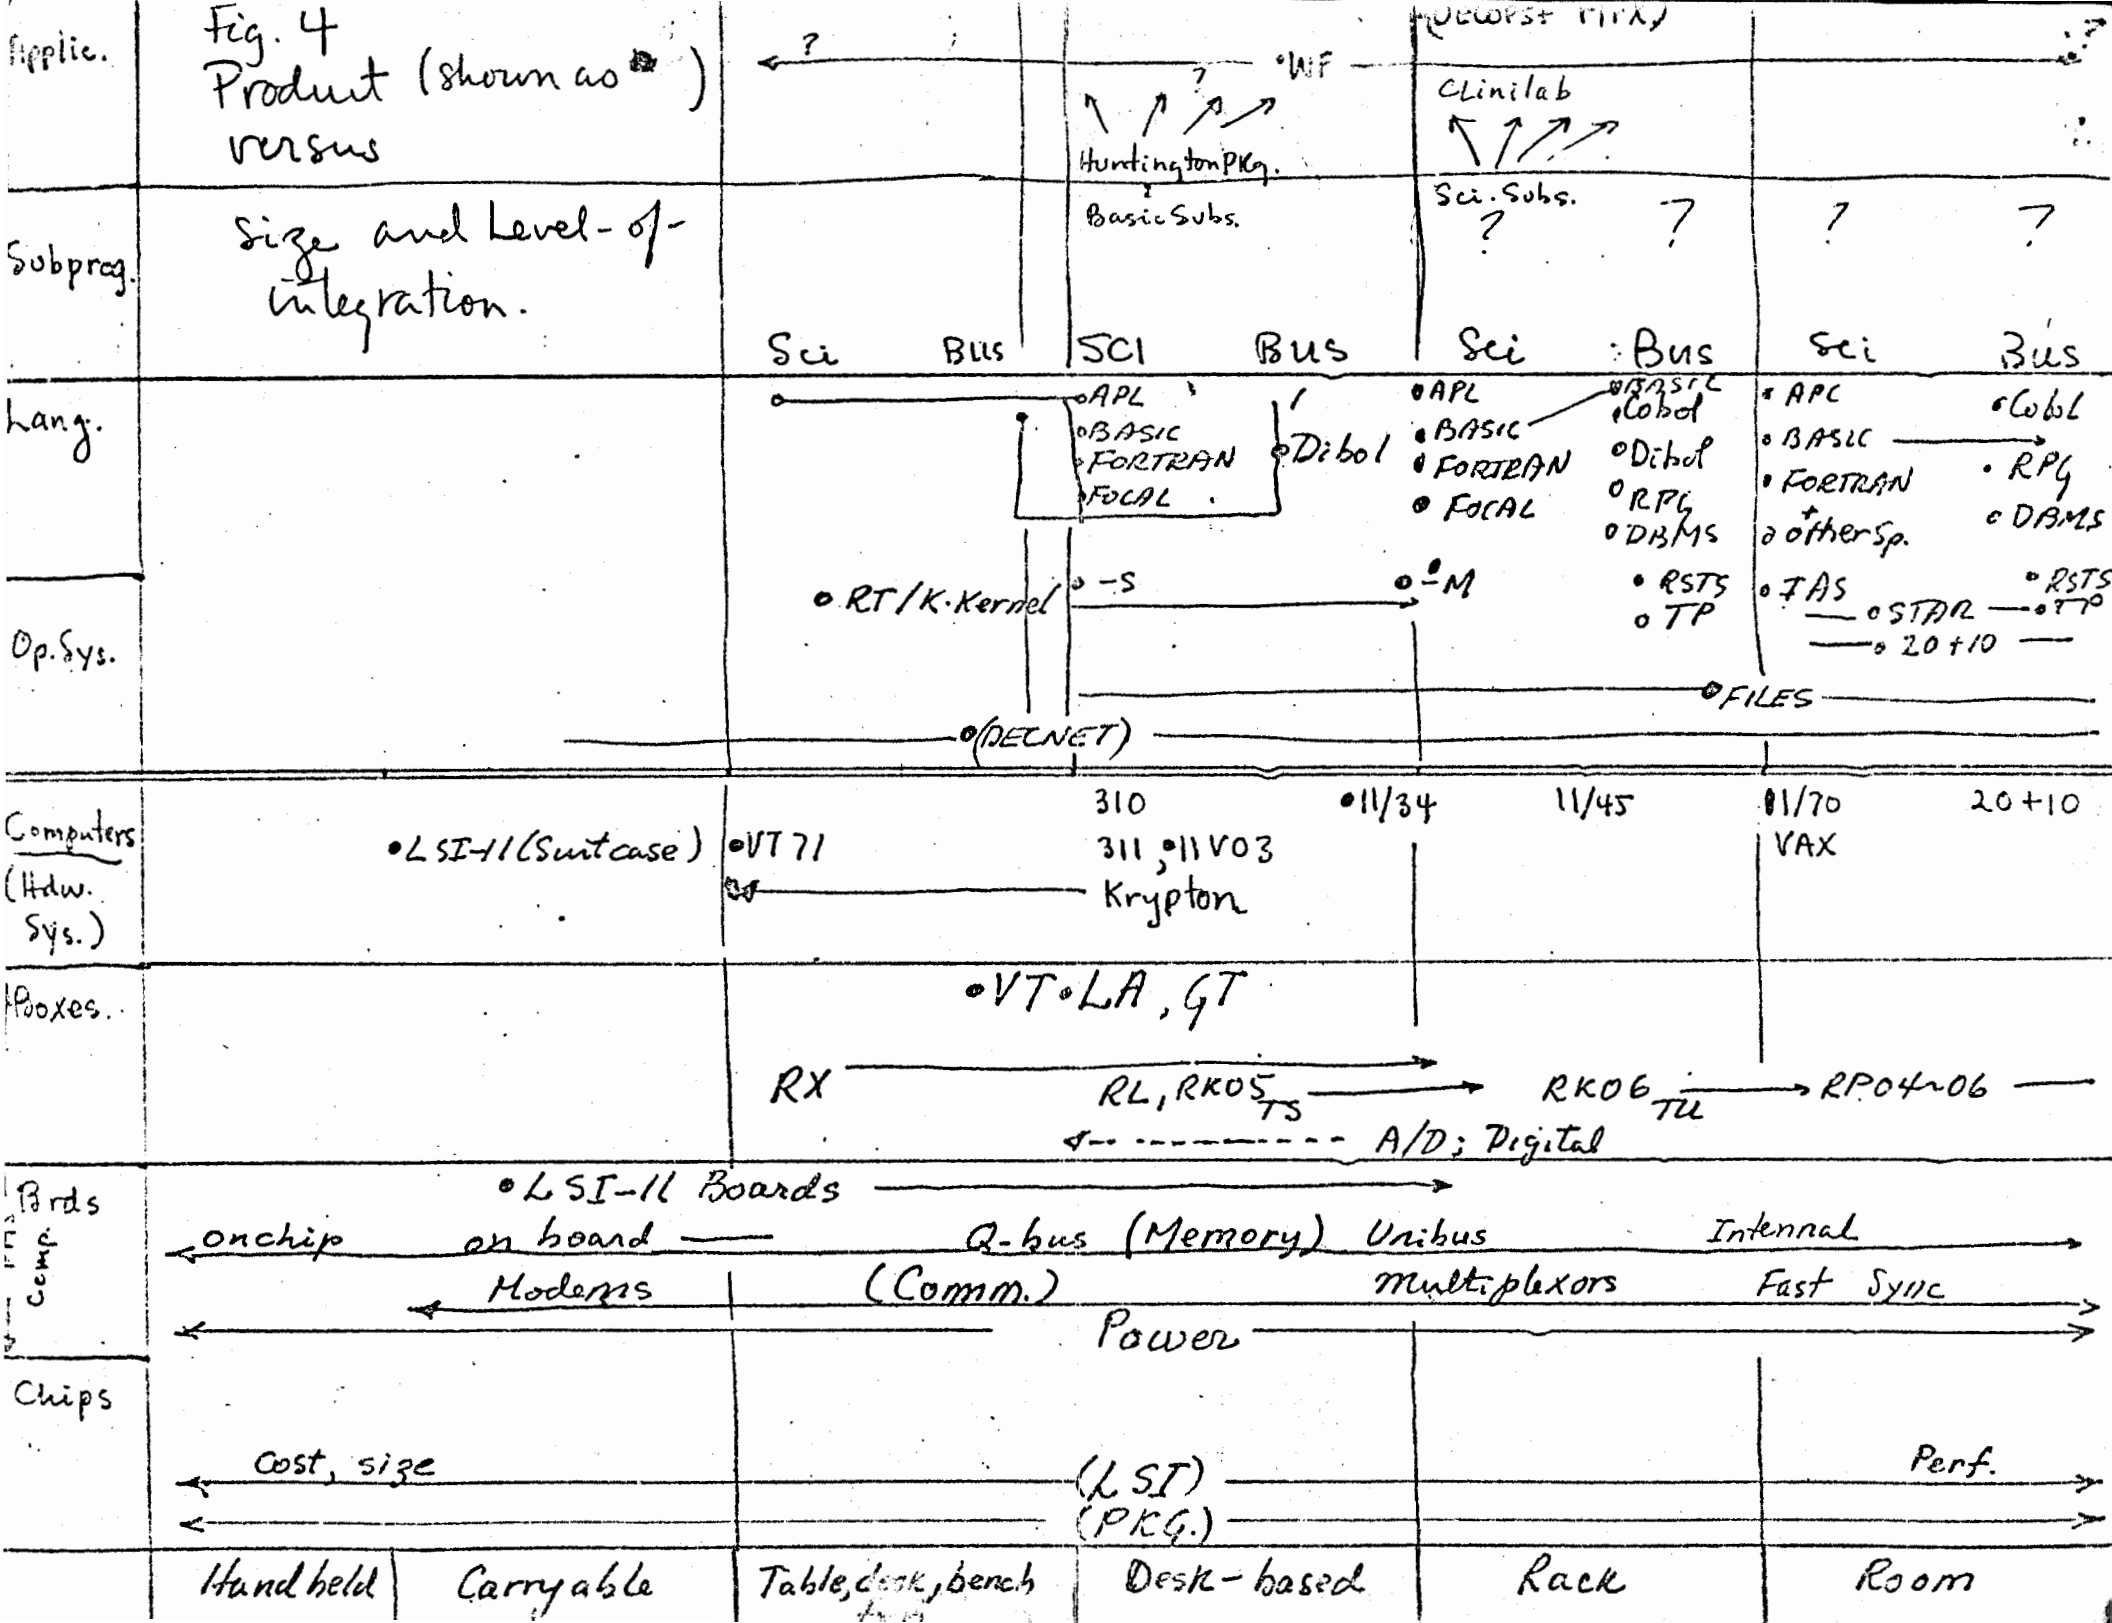 Applic.
Fig. 4
Product (shown as )
versus
size and Level-of-
integration.
?
•WF
?
?
Clinilab
Huntington Pkg.
Basic Subs.
Sci. Subs.
?
?
?
?
Subprog.
Sci Bus SCI Bus Sci Bus Sci Bus
Lang.
APL
BASIC
FORTRAN
FOCAL
Dibol
•APL
•BASIC
•FORTRAN
•FOCAL
BASIC
Cobol
Dibol
RPG
DBMS
APL
BASIC
FORTRAN
+
other Sp.
•Cobol
•RPG
DBMS
Op. Sys.
•RT/K·Kernel
-S
-M
•RSTS
TP
IAS
•RSTS
STAR
TP
20+10
FILES
(DECNET)
Computers
(Hdw.
Sys.)
310 •11/34 11/45 11/70 20+10
•LSI-11 (Suitcase) •VT71 311, •11V03 VAX
Krypton
Boxes.
•VT•LA, GT
RX RL, RK05 TS RK06 TU RP04~06
A/D; Digital
Brds
Comp.
•LSI-11 Boards
onchip on board Q-bus (Memory) Unibus Internal
Modems (Comm.) multiplexors Fast Sync
Power
Chips
Cost, size (LSI) Perf.
(PKG.)
Handheld Carryable Table, desk, bench Desk-based Rack Room